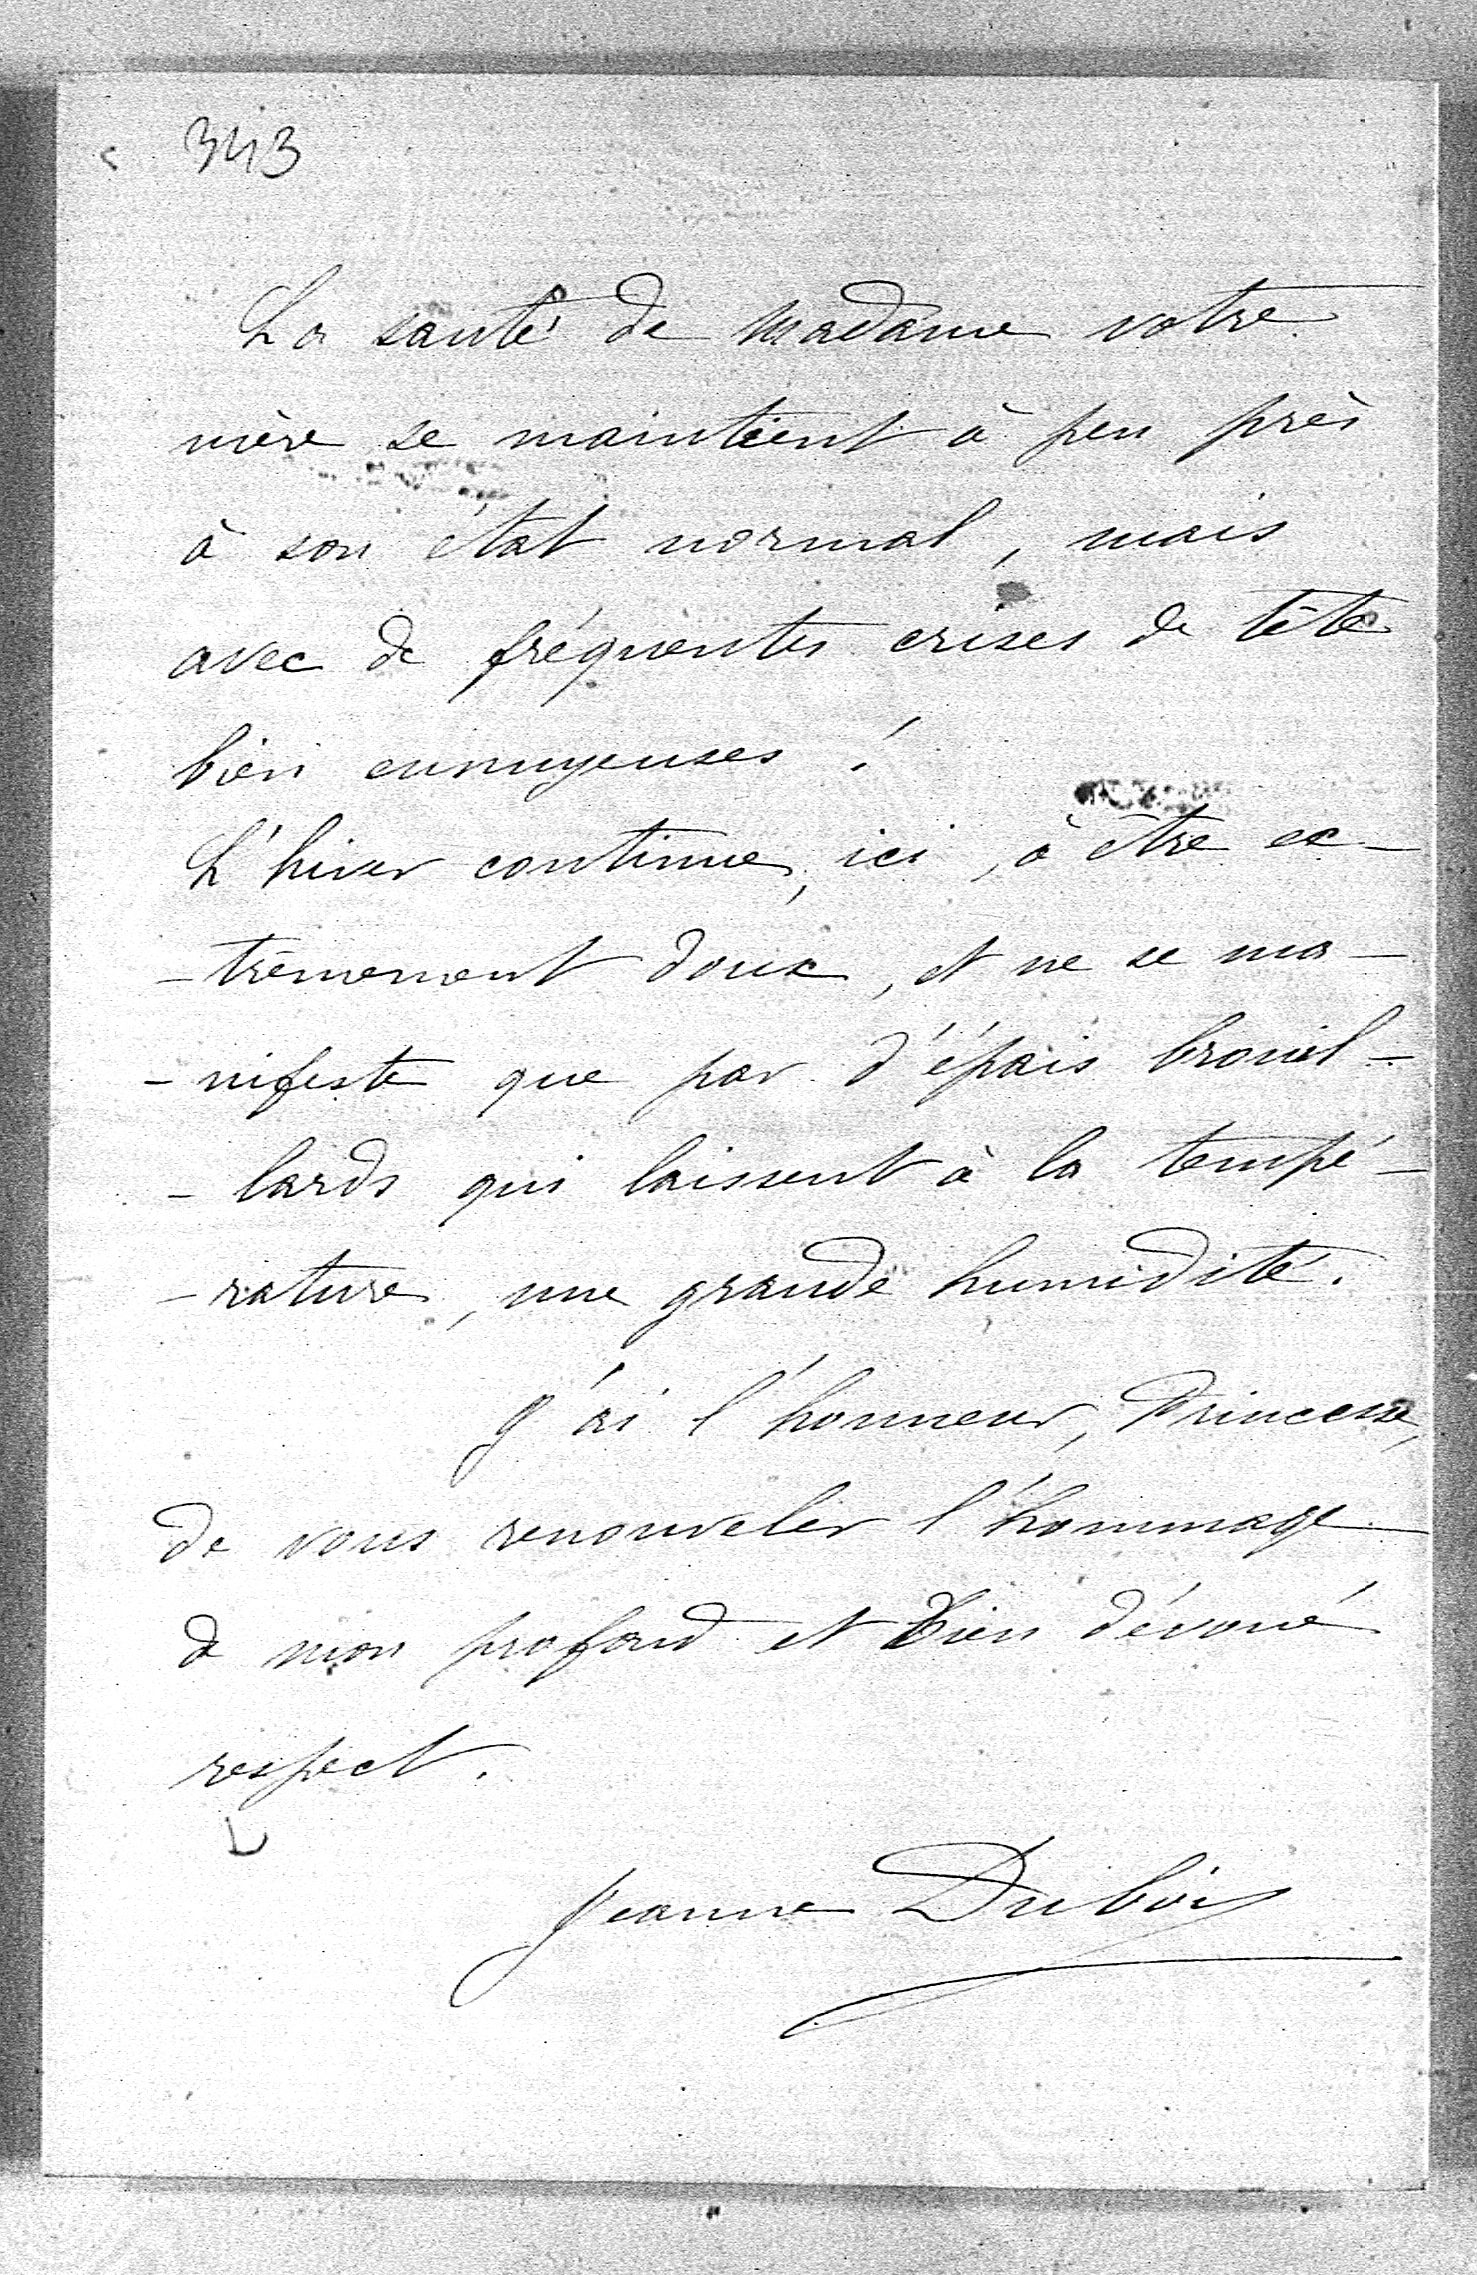 343
La santé de Madame votre
mère se maintient à peu près
à son état normal, mais
avec de fréquentes crises de tête
bien ennuyeuses !
L'hiver continue, ici, à être ex-
-trêmement doux, et ne se ma-
-nifeste que par d'épais brouil-
-lards qui laissent à la tempé-
-rature, une grande humidité.
J'ai l'honneur, Princesse,
de vous renouveler l'hommage
de mon profond et bien dévoué
respect.
Jeanne Dubois